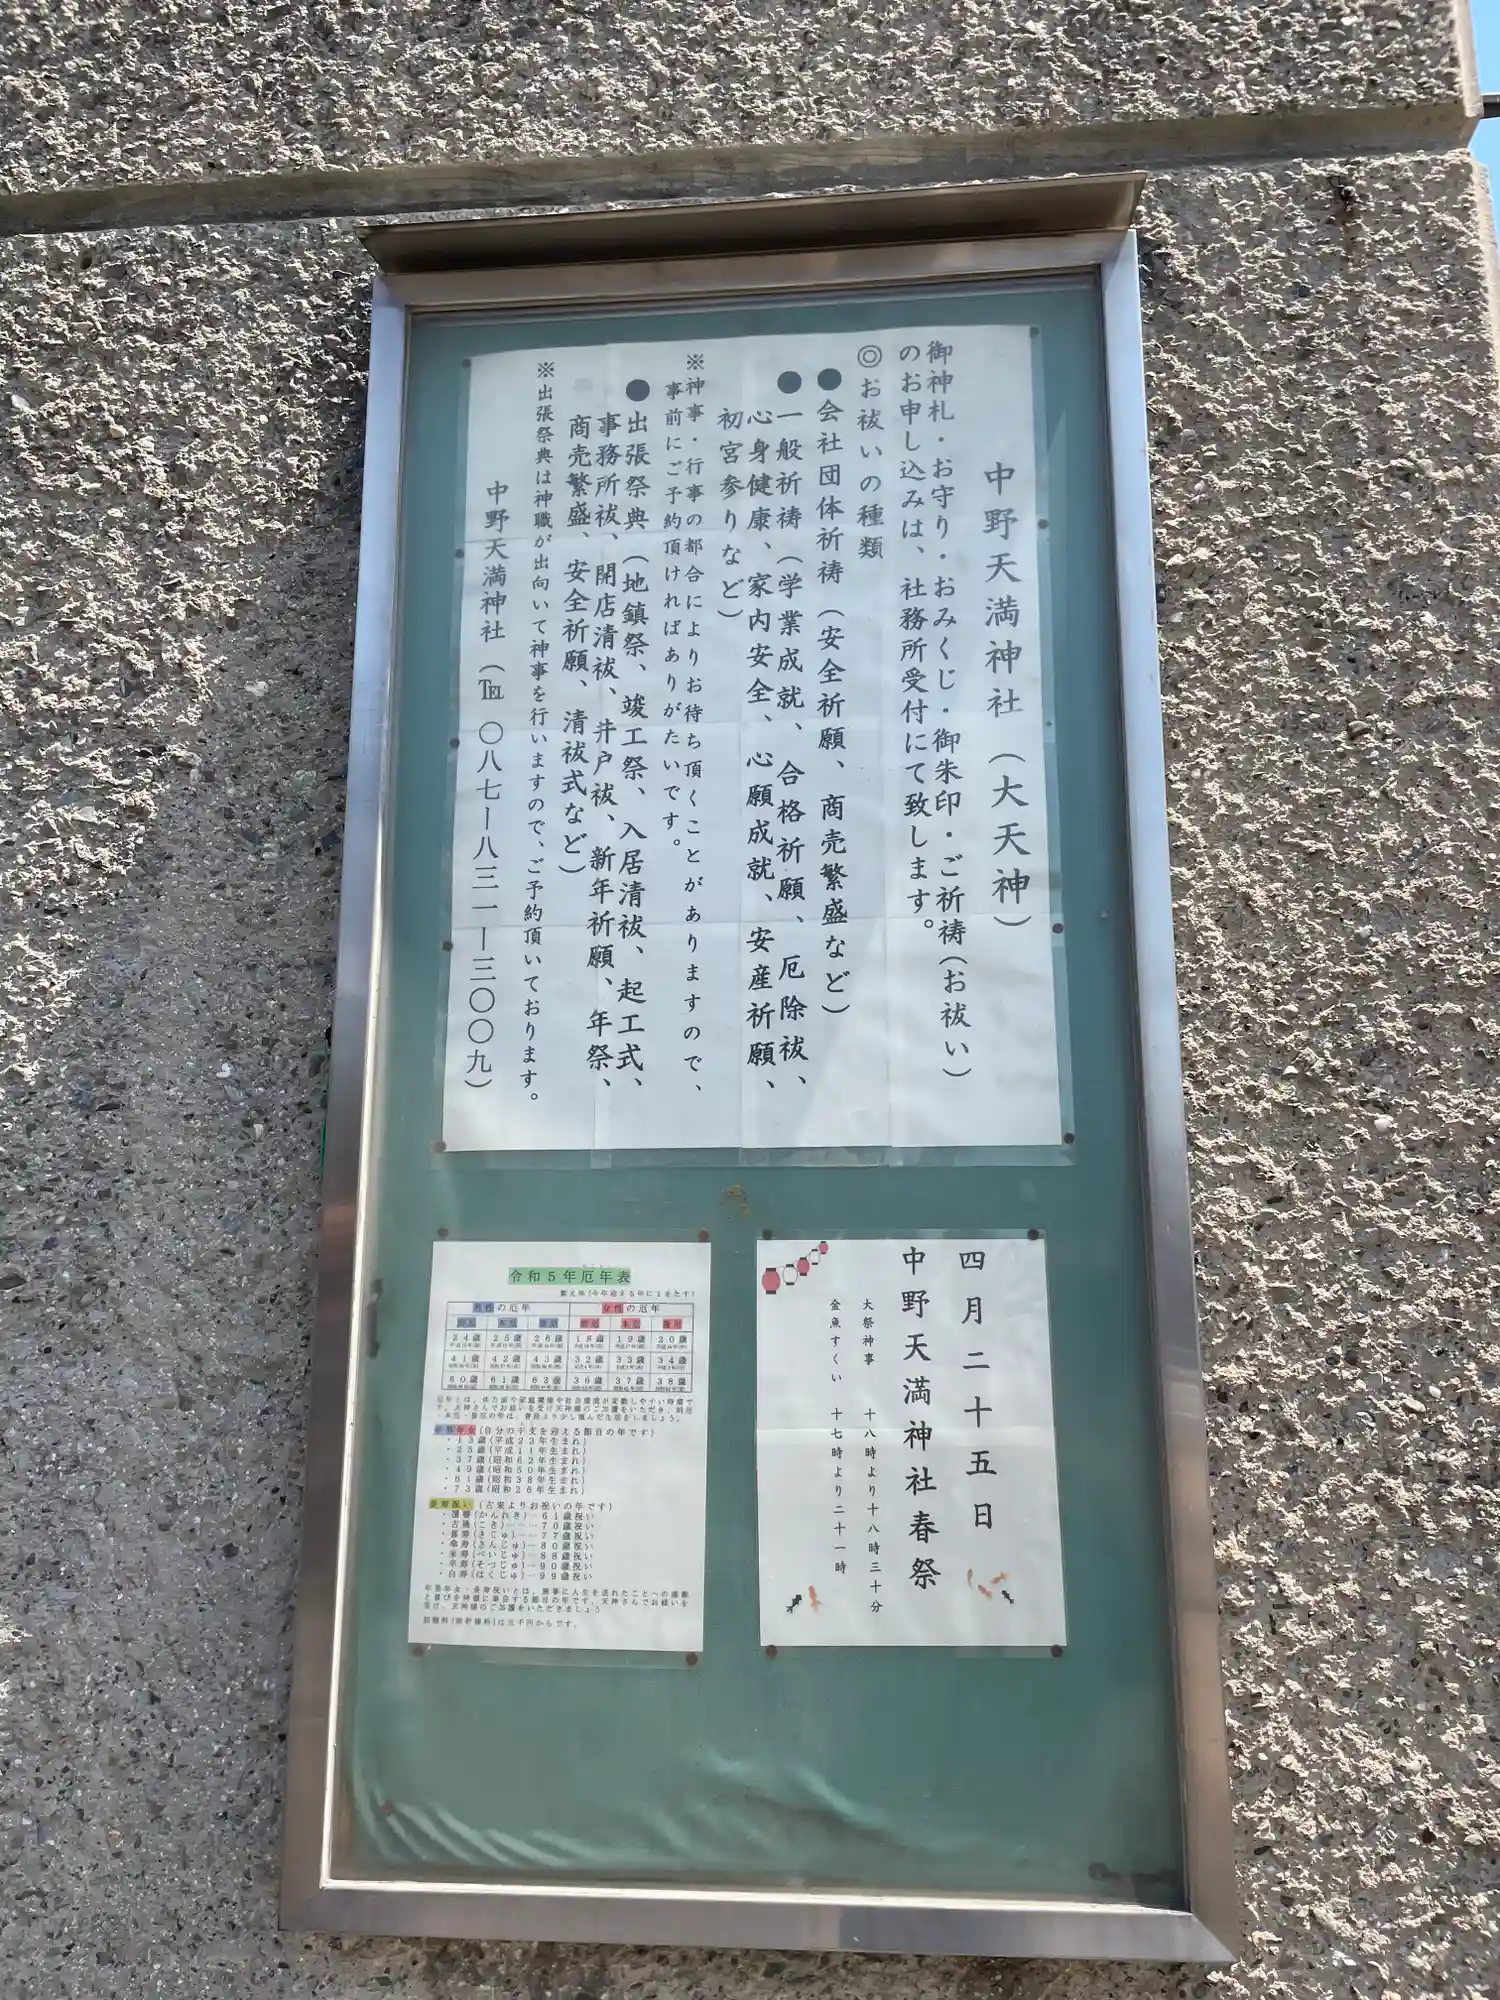 中野天満神社(大天神)
御神札・お守り・おみくじ・御朱印・ご祈祷(お祓い)
のお申し込みは、社務所受付にて致します。
◎お祓いの種類
●会社団体祈祷(安全祈願、商売繁盛など)
●一般祈祷(学業成就、合格祈願、厄除祓、
心身健康、家内安全、心願成就、安産祈願、
初宮参りなど)
※神事・行事の都合によりお待ち頂くことがありますので、
事前にご予約頂ければありがたいです。
●出張祭典(地鎮祭、竣工祭、入居清祓、起工式、
事務所祓、開店清祓、井戸祓、新年祈願、年祭、
商売繁盛、安全祈願、清祓式など)
※出張祭典は神職が出向いて神事を行いますので、ご予約頂いております。
中野天満神社(℡〇八七ー八三一ー三〇〇九)
四月二十五日
中野天満神社春祭
大祭神事 十八時より十八時三十分
金魚すくい 十七時より二十一時
令和5年厄年表
数え年(今年迎える年に1をたす)
男性の厄年 女性の厄年
前厄 本厄 後厄 前厄 本厄 後厄
24歳 25歳 26歳 18歳 19歳 20歳
41歳 42歳 43歳 32歳 33歳 34歳
60歳 61歳 62歳 36歳 37歳 38歳
(自分の干支を迎える節目の年です)
・13歳(平成23年生まれ)
・25歳(平成11年生まれ)
・37歳(昭和62年生まれ)
・49歳(昭和50年生まれ)
・61歳(昭和38年生まれ)
・73歳(昭和26年生まれ)
長寿祝い(古来よりお祝いの年です)
・還暦(かんれき)…61歳祝い
・古稀(こき)……70歳祝い
・喜寿(きじゅ)……77歳祝い
・傘寿(さんじゅ)…80歳祝い
・米寿(べいじゅ)…88歳祝い
・卒寿(そつじゅ)…90歳祝い
・白寿(はくじゅ)…99歳祝い
年男年女・長寿祝いとは、無事に人生を送れたことへの感謝
と喜びを神様に奉告する節目の年です。天神さんでお祓いを
受け、天神様のご加護をいただきましょう
初穂料(御祈祷料)は五千円からです。